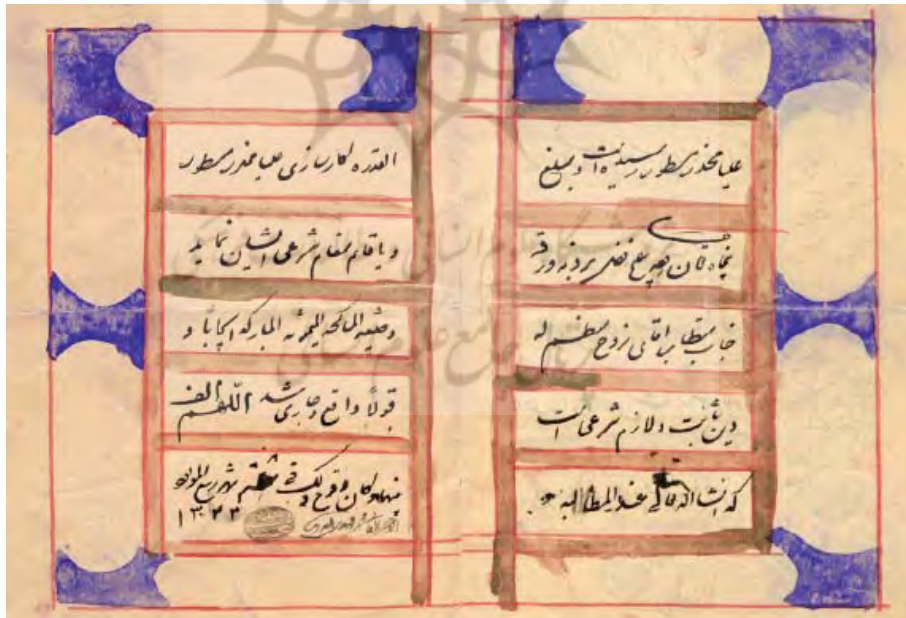 علیا مخدره مسطوره رسیده است و مبلغ
پنجاه تومان وجه
جناب مستطاب آقای زوج معظم له
دین ثابت و لازم شرعی است
که انشاء الله تعالی عندالمطالبه و
القدره کارسازی علیا مخدره مسطوره
و یا قائم مقام شرعی ایشان نمایند
و صیغه المناکحه المیمونه المبارکه ایجاباً و
قبولاً واقع و جاری شد اللهم الف
بینهما و کان وقوع ذلک فی شهر ربیع المولود
۱۳۲۳